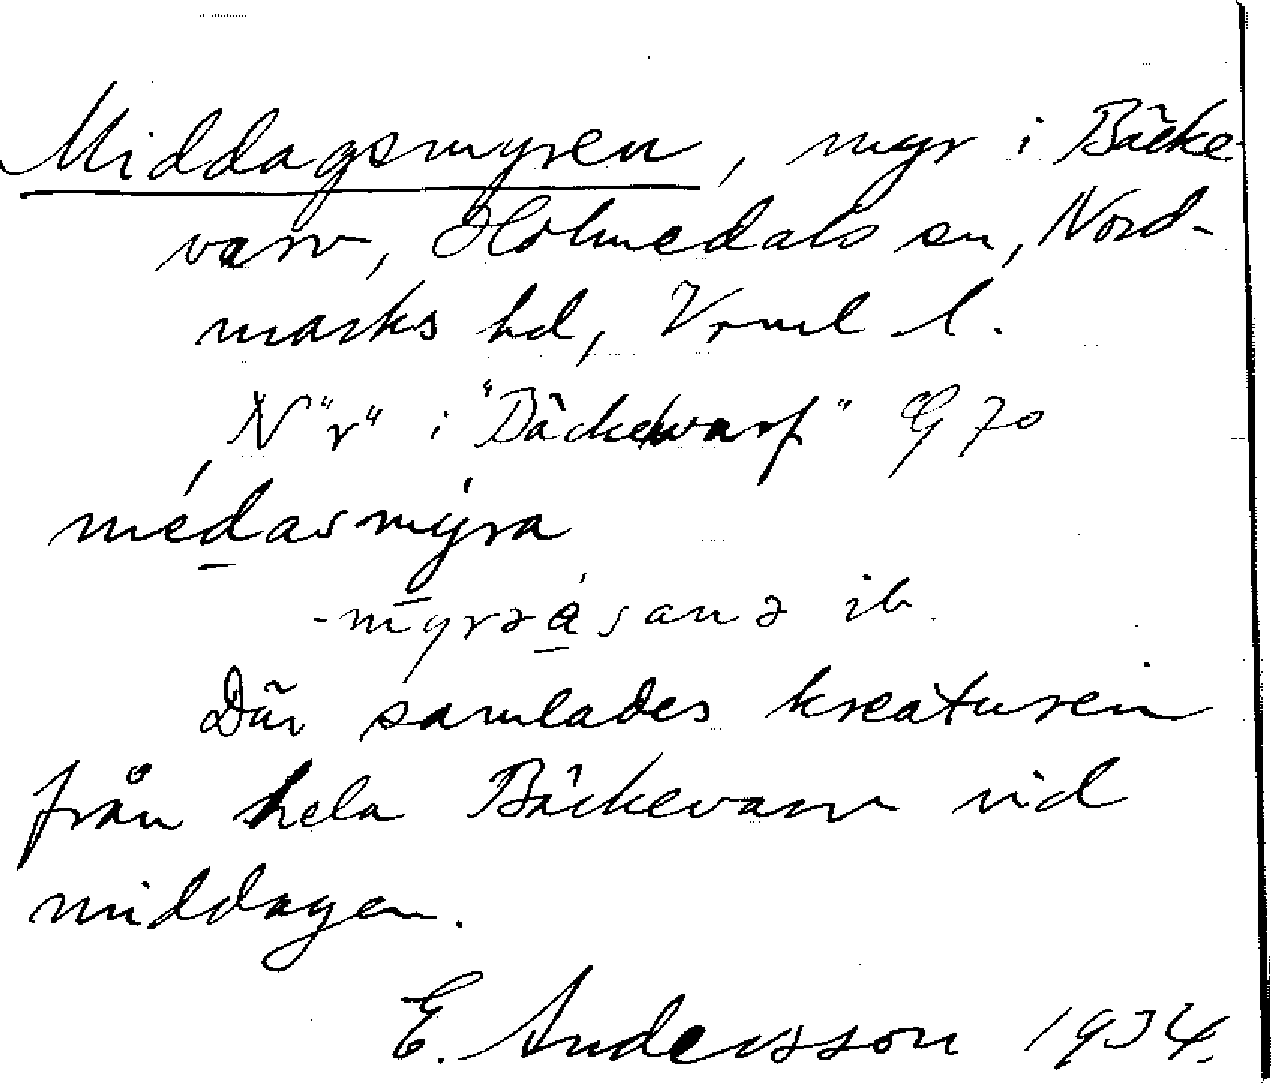 Middagsmyren, myr i Bäcke-
varv, Holmedals sn, Nord-
marks hd, Vrml l.
N "r" i "Bäckewarf" G 70
médasmýra
-myrəåsanə ib.
Där samlades kreaturen
från hela Bäckevarv vid
middagen.
E. Andersson 1934.